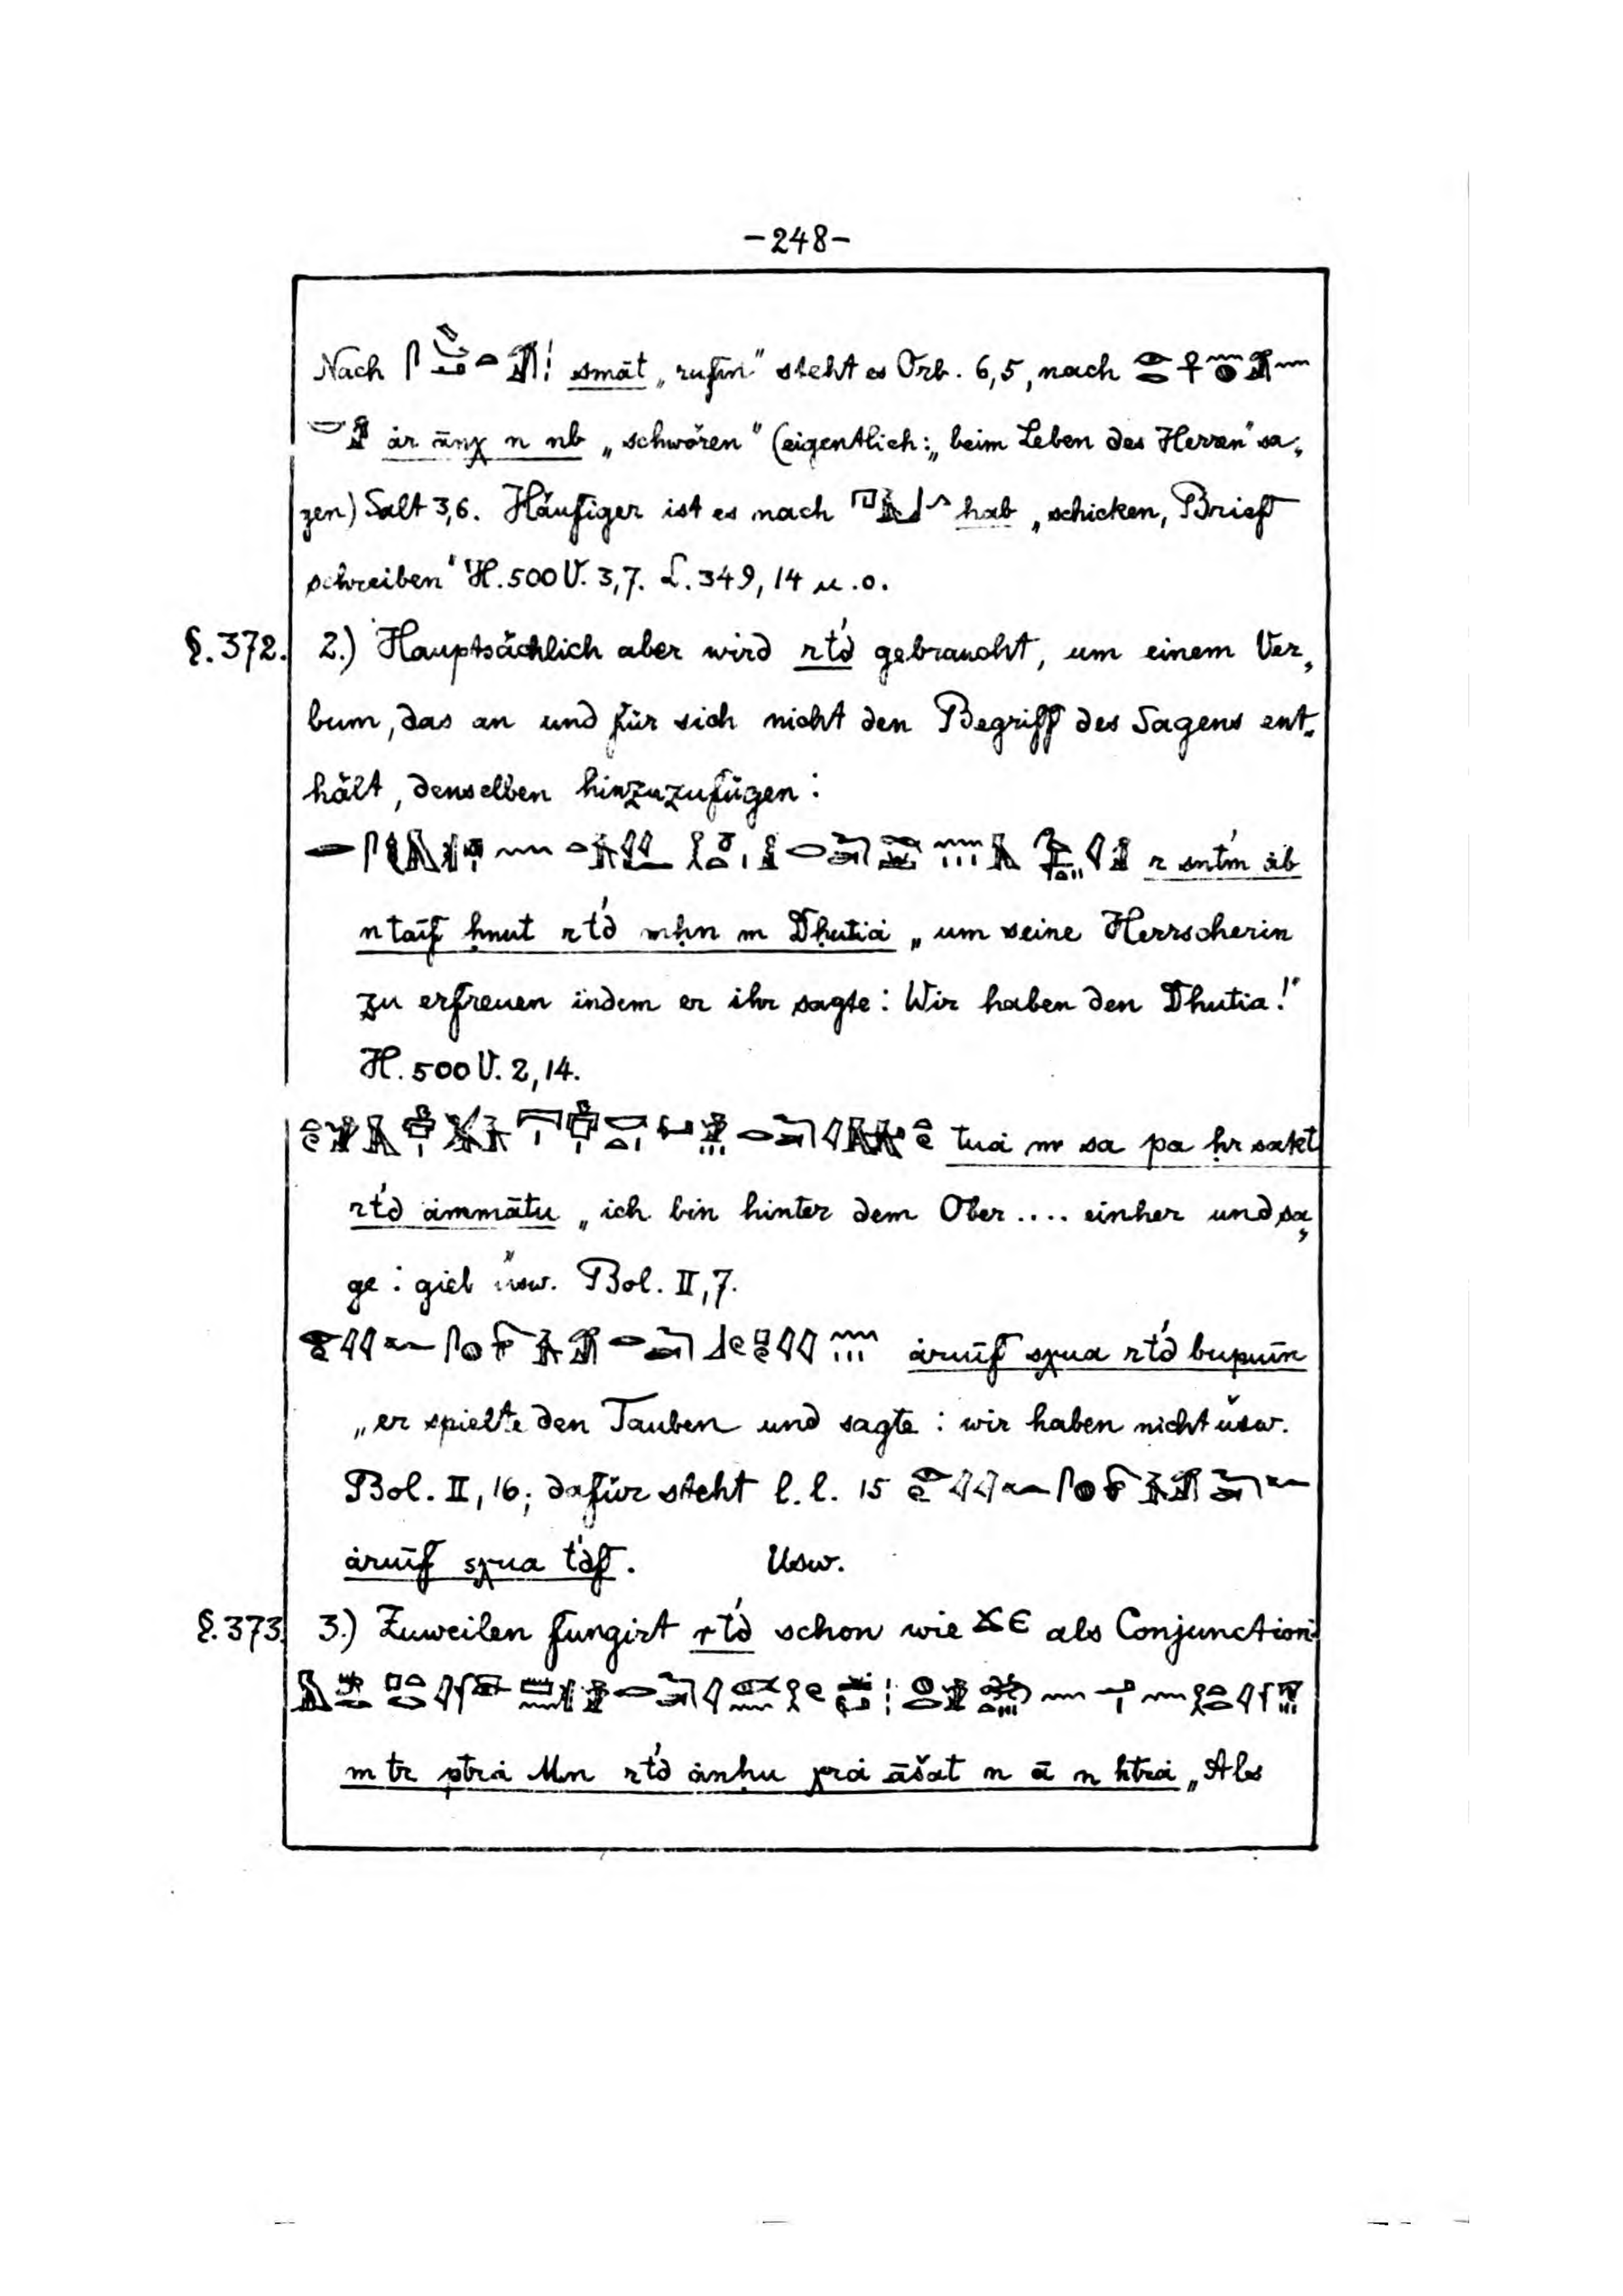 -248-
Nach smāt „rufen" steht es Orb. 6,5, nach
ȧr ānχ n nb „schwören" (eigentlich: „beim Leben des Herren" sa-
gen) Salt 3,6. Häufiger ist es nach hab „schicken, Brief
schreiben" H. 500 V. 3,7. L. 349, 14 u. o.
§. 372. 2.) Hauptsächlich aber wird rt'd gebraucht, um einem Ver-
bum, das an und für sich nicht den Begriff des Sagens ent-
hält, denselben hinzuzufügen:
r snt'm ȧb
ntaif ḥnut rt'd mḥn m Dḥutiȧ „um seine Herrscherin
zu erfreuen indem er ihr sagte: Wir haben den Dhutia!"
H. 500 V. 2, 14.
tuȧ m sa pa ḥr sakt
rt'd ȧmmātu „ich bin hinter dem Ober .... einher und sa-
ge: gieb usw." Bol. II, 7.
ȧruif sχua rt'd bupuin
„er spielte den Tauben und sagte: wir haben nicht usw."
Bol. II, 16; dafür steht l. l. 15
ȧruif sχua t'df. Usw.
§. 373. 3.) Zuweilen fungirt rt'd schon wie ϪЄ als Conjunction:
m tr ptrȧ Mn rt'd ȧnḥu χrȧ āšat n ā n ḥtrȧ „Als